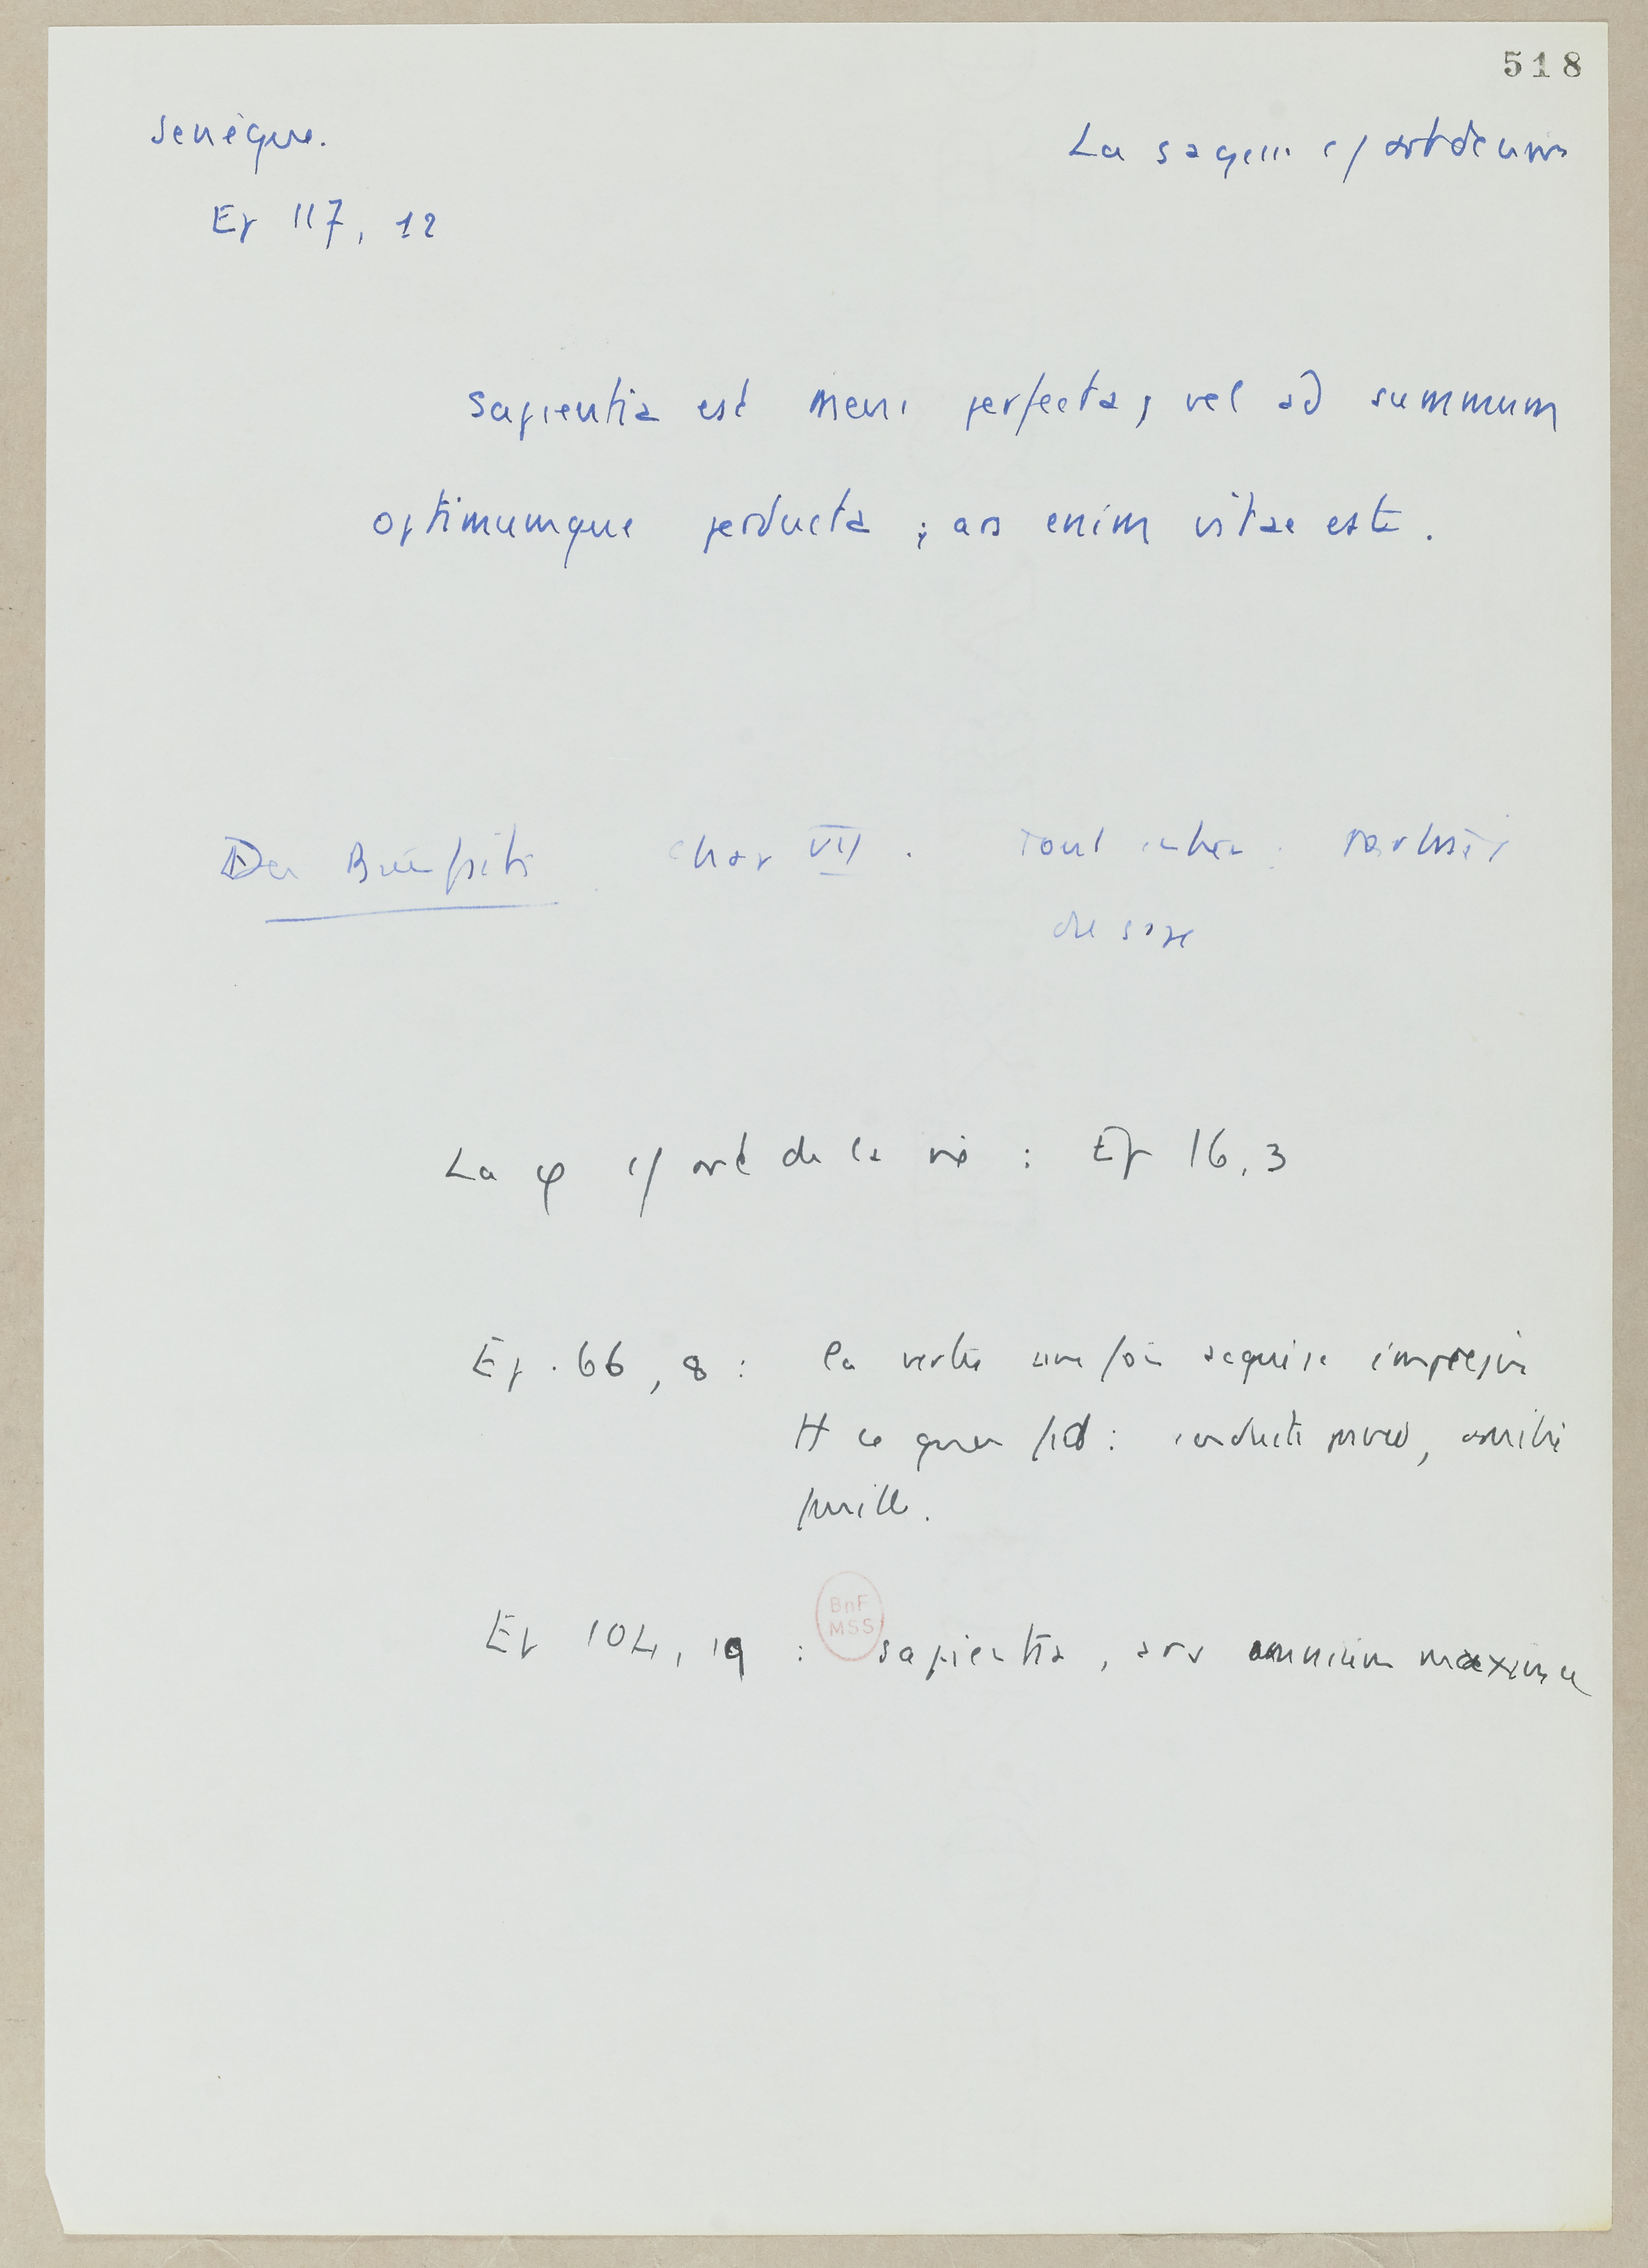 518
Sénèque.
La sagesse c/ art de vivre
Ep 117, 12
sapientia est mens perfecta, vel ad summum
optimumque perducta ; ars enim vitae est.
Des Bienfaits chap VII. Tout
du sage
La φ c/ art de la vie : Ep 16, 3
Ep. 66, 8 : la vertu une fois acquise imprègne
tt ce qu'on fait : conduite privée,
famille.
BnF
MSS
Ep 104, 19 : sapientia, ars omnium maxima